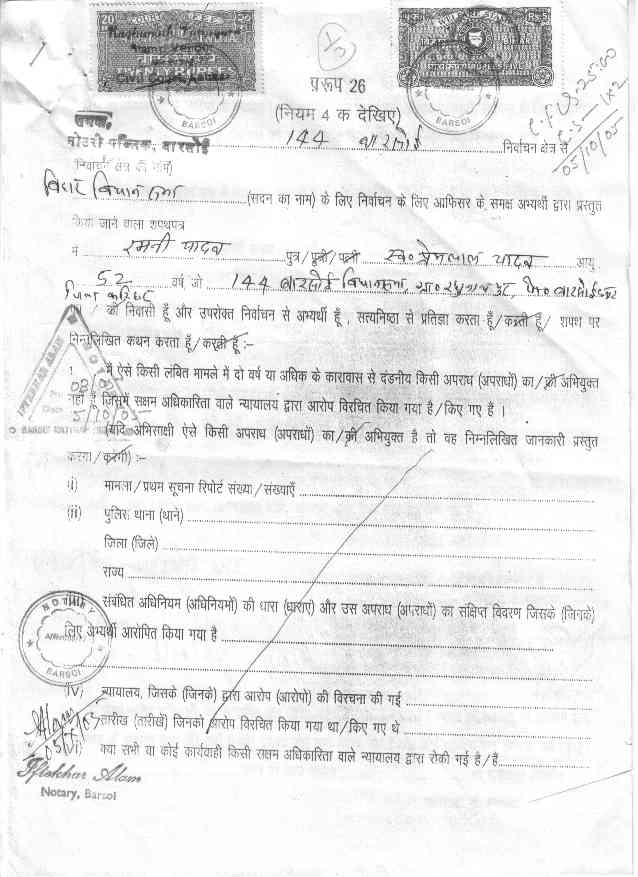 20 COURT FEE 20
WELFARE STAMP
1/3
प्ररूप 26
(नियम 4 क देखिए)
BARSOI
BARSOI
C.F.U.S-25:00
05/10/05
समक्ष,
नोटरी पब्लिक, बारसोई
144 बारसोई निर्वाचन क्षेत्र से
(निर्वाचन क्षेत्र का नाम)
बिहार विधान सभा (सदन का नाम) के लिए निर्वाचन के लिए आफिसर के समक्ष अभ्यर्थी द्वारा प्रस्तुत
किया जाने वाला शपथपत्र
मैं रमनी यादव पुत्र/पुत्री/पत्नी स्व० प्रेमलाल यादव आयु
52 वर्ष, जो 144 बारसोई विधानसभा,
जिला कटिहार
का निवासी हूँ और उपरोक्त निर्वाचन से अभ्यर्थी हूँ, सत्यनिष्ठा से प्रतिज्ञा करता हूँ/करती हूँ/ शपथ पर
निम्नलिखित कथन करता हूँ/करती हूँ :–
मैं ऐसे किसी लंबित मामले में दो वर्ष या अधिक के कारावास से दंडनीय किसी अपराध (अपराधों) का/की अभियुक्त
नहीं हूँ जिसमें सक्षम अधिकारिता वाले न्यायालय द्वारा आरोप विरचित किया गया है/किए गए हैं ।
IFTEKHAR ALAM
5/10/05
(यदि अभिसाक्षी ऐसे किसी अपराध (अपराधों) का/की अभियुक्त है तो वह निम्नलिखित जानकारी प्रस्तुत
करेगा/करेगी) :–
(i) मामला/प्रथम सूचना रिपोर्ट संख्या/संख्याएँ
(ii) पुलिस थाना (थाने)
जिला (जिले)
राज्य
संबंधित अधिनियम (अधिनियमों) की धारा (धाराएं) और उस अपराध (अपराधों) का संक्षिप्त विवरण जिसके (जिनके)
लिए अभ्यर्थी आरोपित किया गया है
NOTARY
BARSOI
(IV) न्यायालय, जिसके (जिनके) द्वारा आरोप (आरोपो) की विरचना की गई
तारीख (तारीखें) जिनको आरोप विरचित किया गया था/किए गए थे
क्या सभी या कोई कार्यवाही किसी सक्षम अधिकारिता वाले न्यायालय द्वारा रोकी गई है/हैं
Iftekhar Alam
Notary, Barsoi